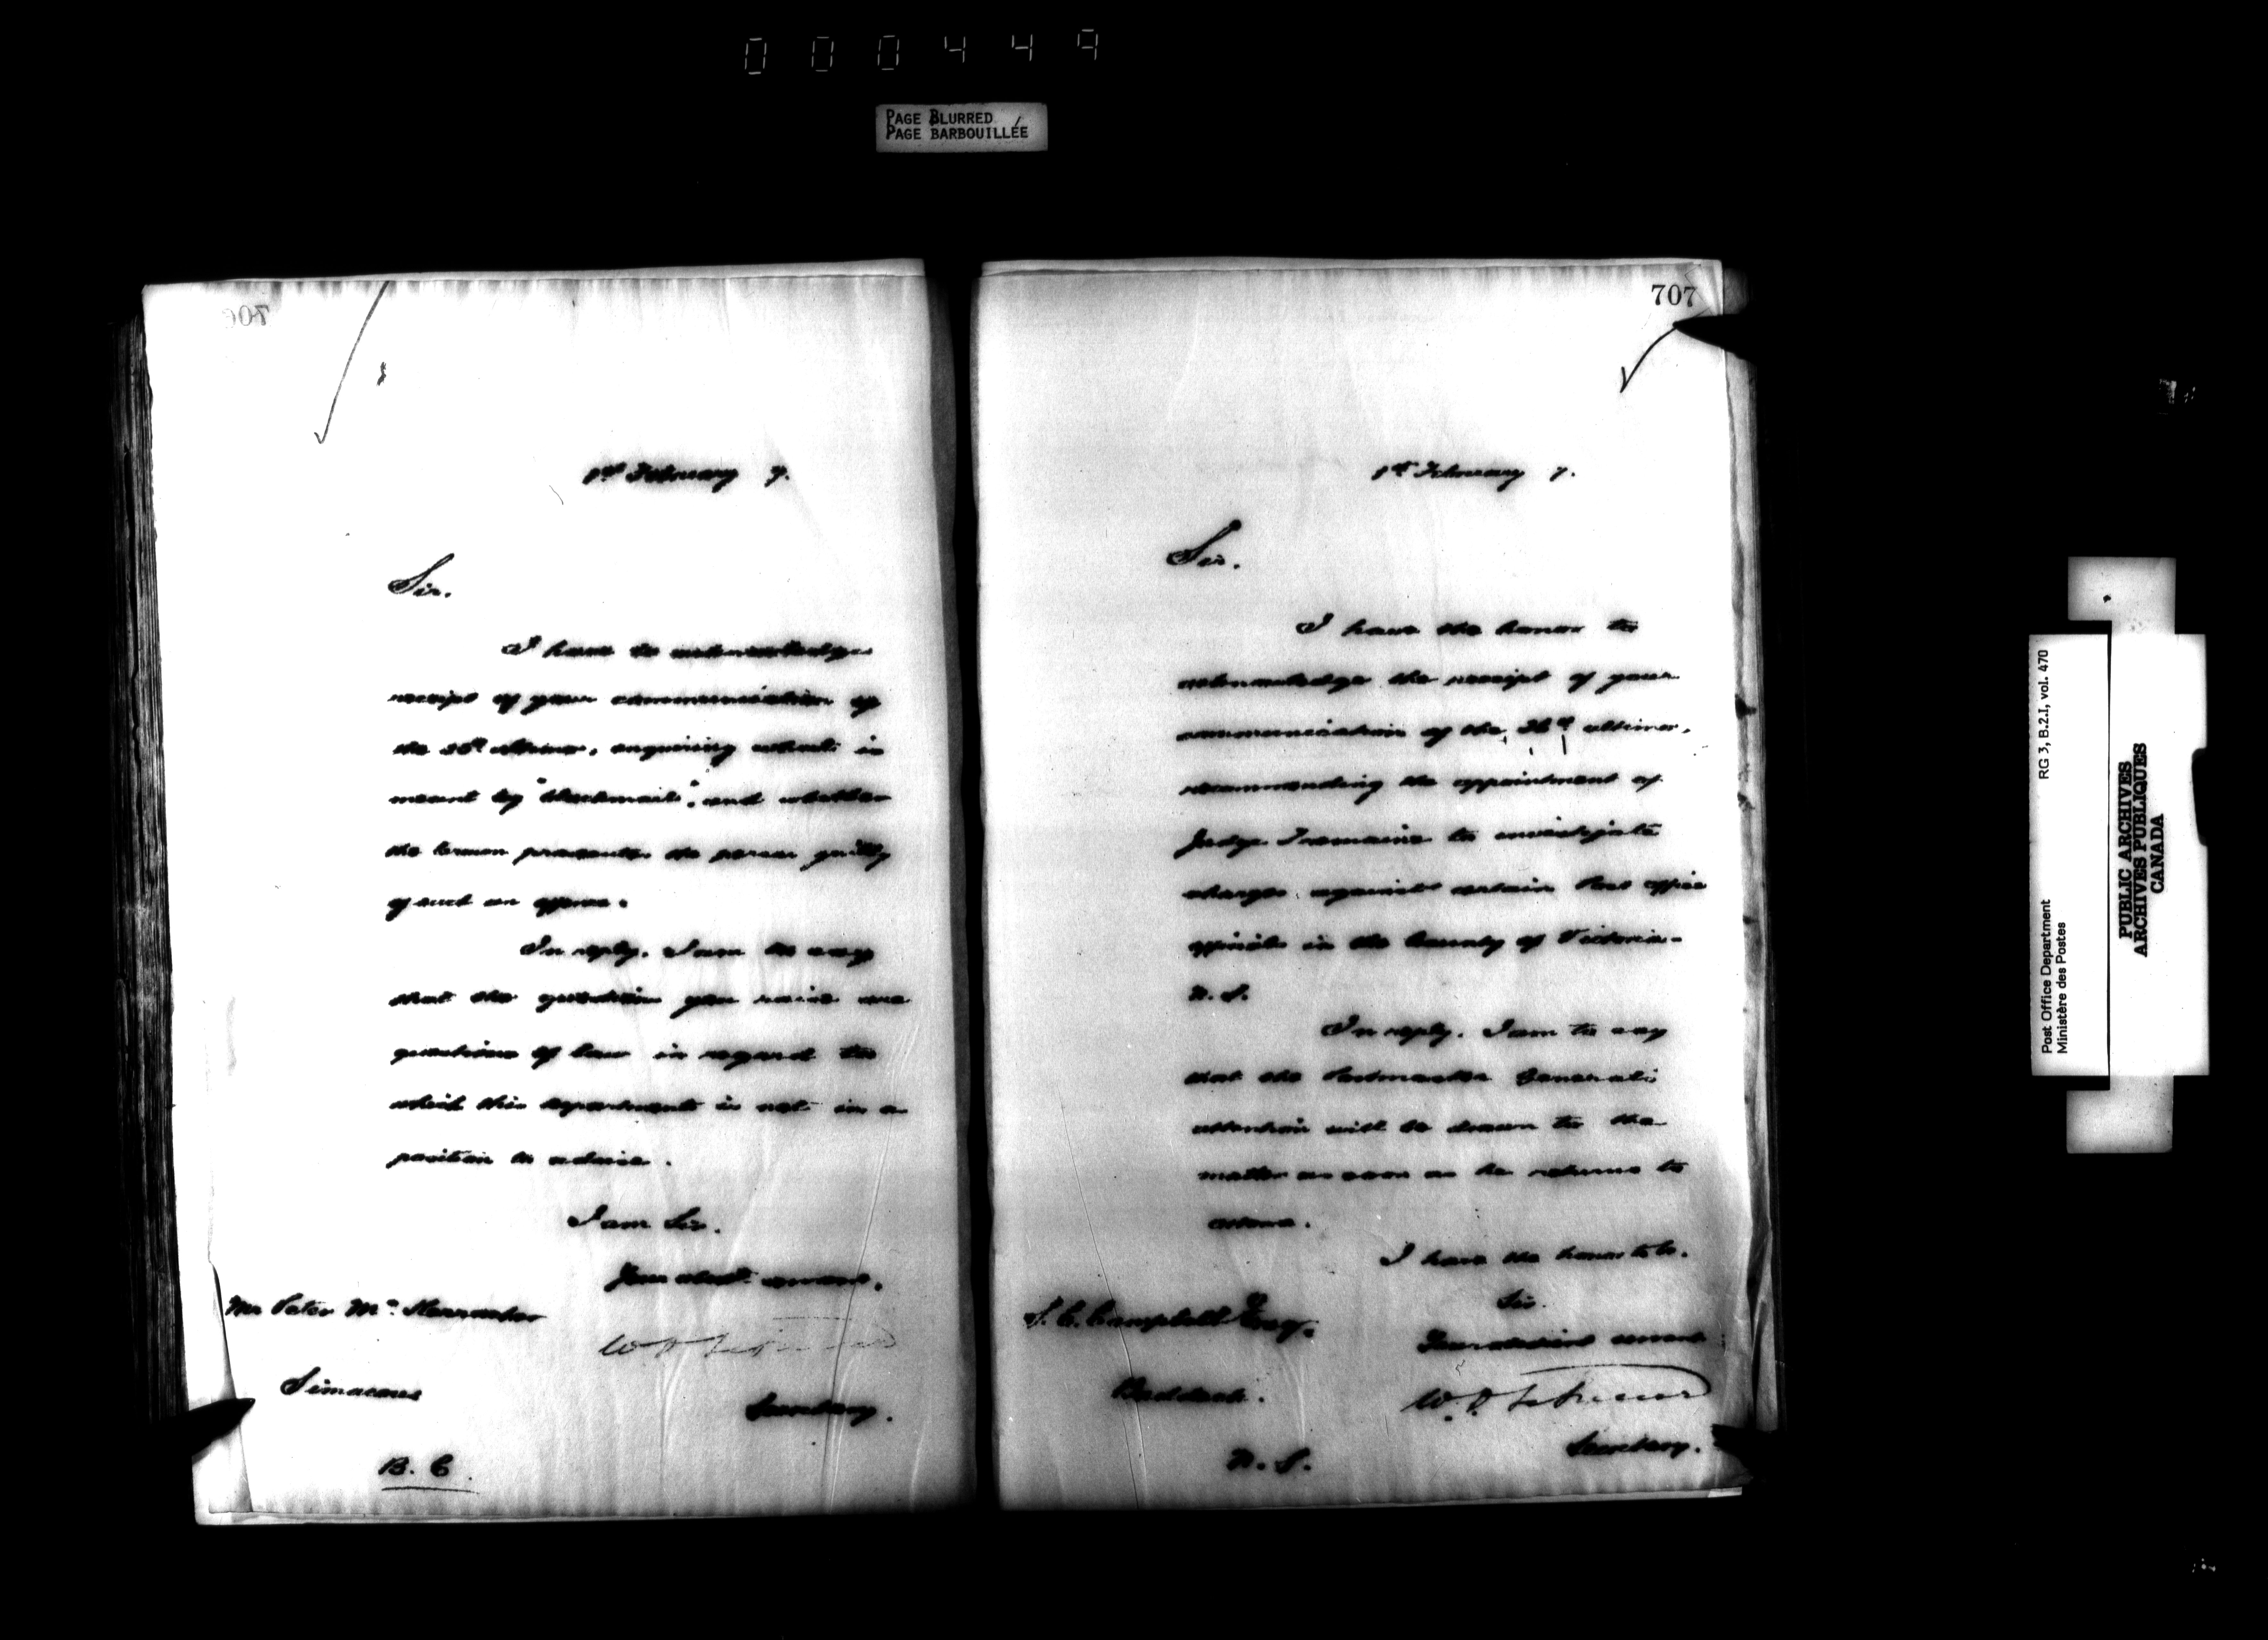 000449
PAGE BLURRED
PAGE BARBOUILLÉE
706
1st February 7.
Sir.
I have to acknowledge
receipt of your communication of
the ultimo, enquiring what is
meant by "blackmail", and whether
the Crown prosecutes the person guilty
of such an offence.
In reply, I am to say
that the question you raise are
questions of law in regard to
which this department is not in a
position to advise.
I am Sir.
Your obedt. servant,
Mr Peter Mc
Secretary.
B. C.
707
1st February 7.
Sir.
I have the honor to
acknowledge the receipt of your
communication of the ultimo,
recommending the appointment of
Judge Tremaine to investigate
charges against certain Post office
officials in the County of Victoria-
N. S.
In reply. I am to say
that the Postmaster General's
attention will be drawn to the
matter as soon as he returns to
Ottawa.
I have the honor to be.
Sir.
Your obedient servant
Campbell Esq.
Baddeck.
N. S.
Secretary.
Post Office Department
Ministère des Postes
RG 3, B.2.I, vol. 470
PUBLIC ARCHIVES
ARCHIVES PUBLIQUES
CANADA